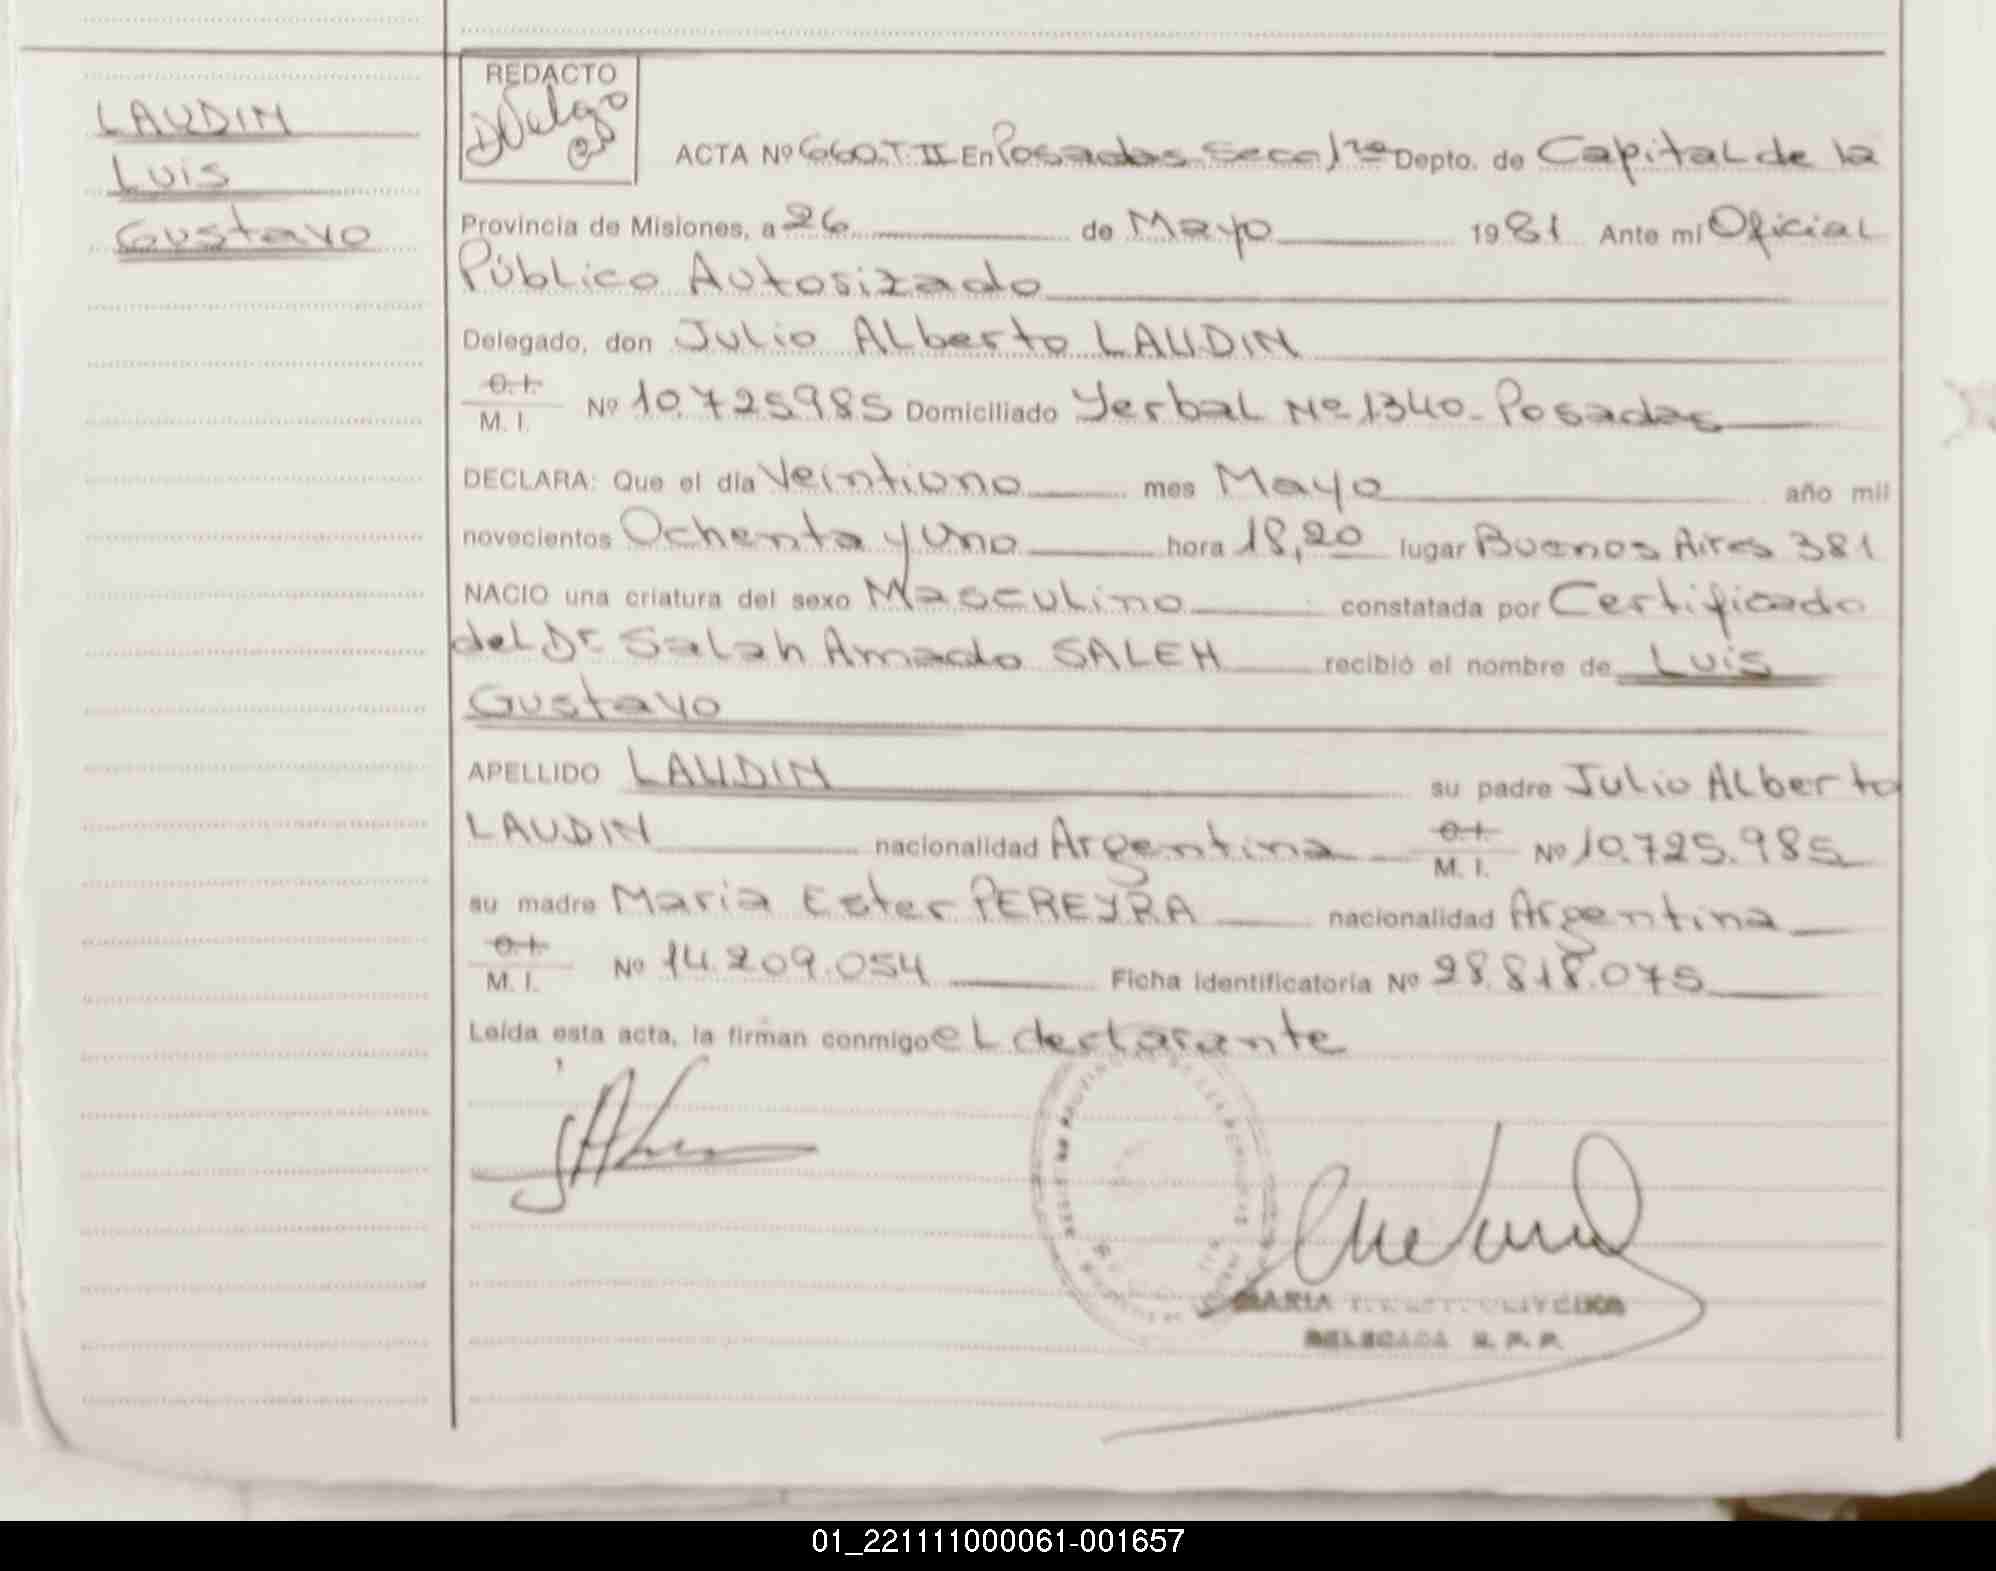 LAUDIN
Luis
Gustavo
REDACTO
ACTA Nº 660.T.II En Posadas Secc 1ra Depto. de Capital de la
Provincia de Misiones, a 26 de Mayo 1981 Ante mí Oficial
Público Autorizado
Delegado, don Julio Alberto LAUDIN
C.I.
M. I. Nº 10.725985 Domiciliado Yerbal Nº 1340_ Posadas
DECLARA: Que el día Veintiuno mes Mayo año mil
novecientos Ochenta y Uno hora 18,20 lugar Buenos Aires 381
NACIO una criatura del sexo Masculino constatada por Certificado
del Dr Salah Amado SALEH recibió el nombre de Luis
Gustavo
APELLIDO LAUDIN su padre Julio Alberto
LAUDIN nacionalidad Argentina C.I. M. I. Nº 10.725.985
su madre Maria Ester PEREYRA nacionalidad Argentina
C.I.
M. I. Nº 14.209.054 Ficha identificatoria Nº 28.818.075
Leída esta acta, la firman conmigo el declarante
MARIA
DELEGADA R. P. P.
01_221111000061-001657